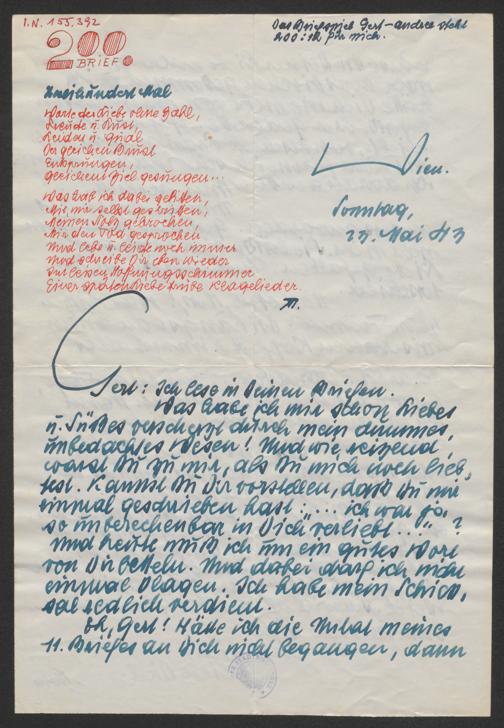 I.N. 155.392
200.
BRIEF.
Das Briefspiel Gert-andre steht
200:1R für mich.
Zweihundert Mal
Worte der Liebe ohne Zahl,
Freude u. Lust,
Leiden u. Qual
Der gleichen Brust
Entsprungen,
gleichem Ziel gesungen...
Was hab ich dabei gelitten,
Mit mir selbst gestritten,
Meinen Stolz gebrochen
Mit dem Tod gesprochen
Und lebe u. leide noch immer
Und schreibe Dir eben wieder
Einer späten Liebe trübe Klagelieder.
Wien.
Sonntag,
23. Mai 43
Gert: Ich lese in Deinen Briefen.
Was habe ich mir schon Liebes
u. Süßes verscherzt durch mein dummes,
unbedachtes Wesen! Und wie reizend
warst Du zu mir, als Du mich noch lieb-
test. Kannst Du Dir vorstellen, dass Du mir
einmal geschrieben hast: „... ich war ja
so unberechenbar in Dich verliebt ..." ?
Und heute muß ich um ein gutes Wort
von Dir betteln. Und dabei darf ich nicht
einmal klagen. Ich habe mein Schick-
sal redlich verdient.
Oh, Gert! Hätte ich die Untat meines
11. Briefes an Dich nicht begangen, dann